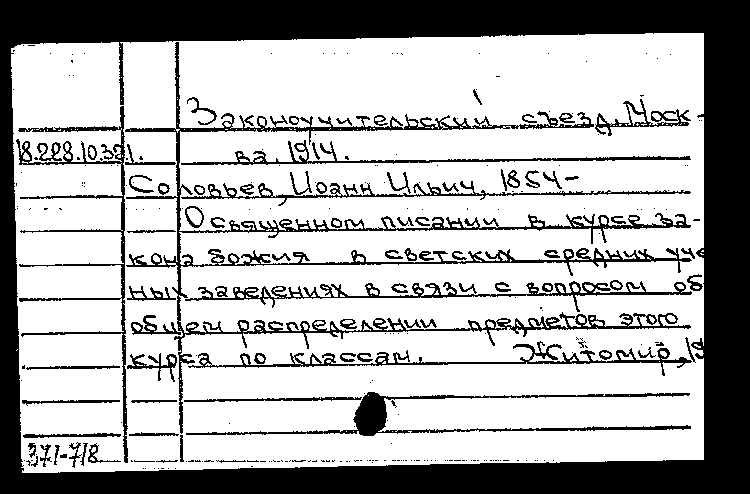 Законоучительский съезд. Моск-
18.228.10.321. ва. 1914.
Соловьев, Иоанн Ильич, 1854-
О священном писании в курсе за-
кона божия в светских средних уче
ных заведениях в связи с вопросом об
общем распределении предметов этого
курса по классам. Житомир, 19
371-718